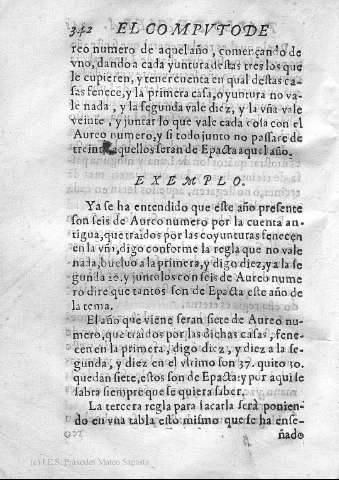 342 EL COMPVTO DE
reo numero de aquel año, començando de
vno, dando a cada yuntura destas tres los que
le cupieren, y tener cuenta en qual destas ca-
sas fenece, y la primera casa, o yuntura no va-
le nada, y la segunda vale diez, y la vña vale
veinte, y juntar lo que vale cada cosa con el
Aureo numero, y si todo junto no passare de
treinta aquellos seran de Epacta aquel año.
EXEMPLO.
Ya se ha entendido que este año presente
son seis de Aureo numero por la cuenta an-
tigua, que traidos por las coyunturas fenecen
en la vña, digo conforme la regla que no vale
nada, buelvo a la primera, y digo diez, y a la se
gunda 20. y juntolos con seis de Aureo nume
ro dire que tantos son de Epacta este año de
la tema.
El año que viene seran siete de Aureo nu-
mero, que traidos por las dichas casas, fene-
cen en la primera, digo diez, y diez a la se-
gunda, y diez en el vltimo son 37. quito 30.
quedan siete, estos son de Epacta: y por aqui se
sabra siempre que se quiera saber.
La tercera regla para sacarla serà ponien-
do en vna tabla esto mismo que se ha ense-
ñado
(c) I.E.S. Práxedes Mateo Sagasta